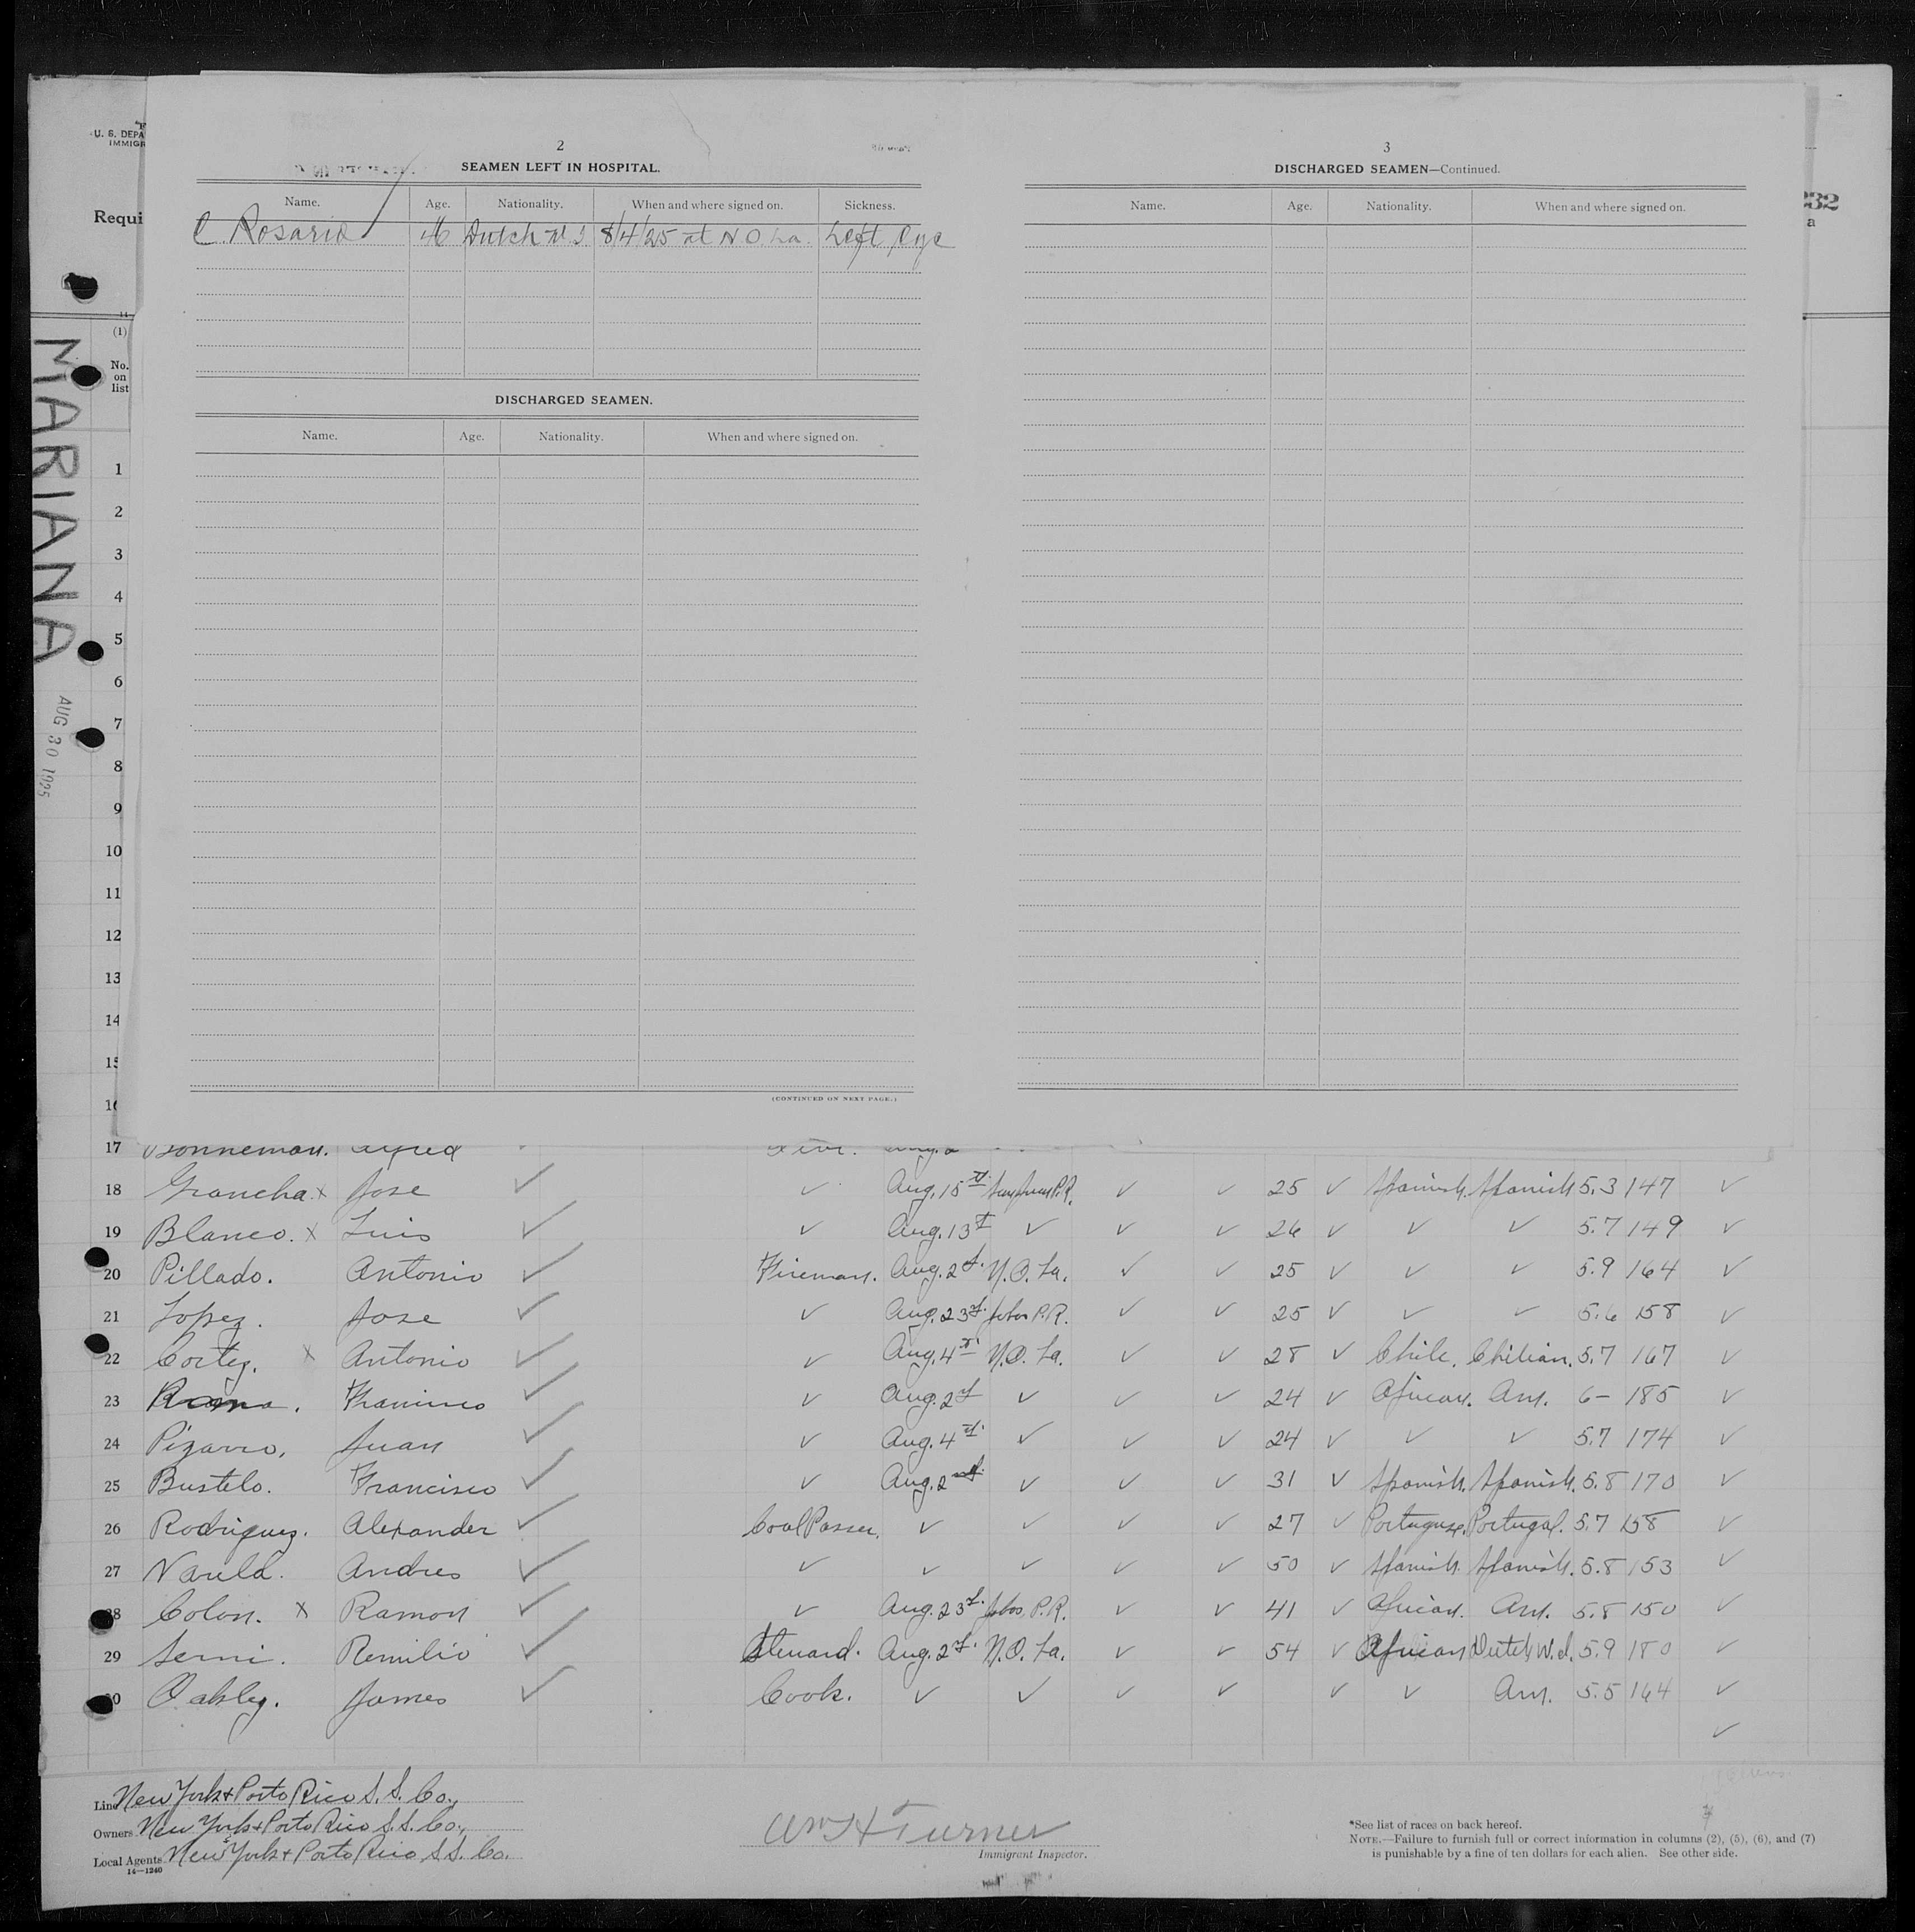 U. S. DEPA
IMMIGR
Requi
232
a
MARIANA
AUG 30 1925
2
SEAMEN LEFT IN HOSPITAL.
Name. Age. Nationality. When and where signed on. Sickness.
C Rosario 46 Dutch W I 8/4/25 at N O La. Left Eye
DISCHARGED SEAMEN.
Name. Age. Nationality. When and where signed on.
(CONTINUED ON NEXT PAGE.)
3
DISCHARGED SEAMEN—Continued.
Name. Age. Nationality. When and where signed on.
14
(1)
No.
on
list
1
2
3
4
5
6
7
8
9
10
11
12
13
14
15
16
17 Bonneman. Alfred
18 x Jose ✓ ✓ Aug. 15th San Juan P.R. ✓ ✓ 25 ✓ Spanish. Spanish 5.3 147 ✓
19 Blanco. x Luis ✓ ✓ Aug. 13th ✓ ✓ ✓ 26 ✓ ✓ ✓ 5.7 149 ✓
20 Pillado. Antonio ✓ Fireman. Aug. 2d. N.O. La. ✓ ✓ 25 ✓ ✓ ✓ 5.9 164 ✓
21 Lopez. Jose ✓ ✓ Aug. 23d. Jobos P.R. ✓ ✓ 25 ✓ ✓ ✓ 5.6 158 ✓
22 Cortez. x Antonio ✓ ✓ Aug. 4th. N.O. La. ✓ ✓ 28 ✓ Chile. Chilian. 5.7 167 ✓
23 Francisco ✓ ✓ Aug. 2d ✓ ✓ ✓ 24 ✓ African. Am. 6- 185 ✓
24 Pizarro, Juan ✓ ✓ Aug. 4th. ✓ ✓ ✓ 24 ✓ ✓ ✓ 5.7 174 ✓
25 Bustelo. Francisco ✓ ✓ Aug. 2nd. ✓ ✓ ✓ 31 ✓ Spanish. Spanish. 5.8 170 ✓
26 Rodriguez. Alexander ✓ Coal Passer. ✓ ✓ ✓ ✓ 27 ✓ Portuguse. Portugal. 5.7 158 ✓
27 Andres ✓ ✓ ✓ ✓ ✓ ✓ 50 ✓ Spanish. Spanish. 5.8 153 ✓
28 Colon. x Ramon ✓ ✓ Aug. 23d. Jobos, P.R. ✓ ✓ 41 ✓ African. Am. 5.8 150 ✓
29 Remilio ✓ Steward. Aug. 2d. N.O. La. ✓ ✓ 54 ✓ African Dutch W.I. 5.9 180 ✓
30 Oakley. James ✓ Cook. ✓ ✓ ✓ ✓ ✓ ✓ Am. 5.5 164 ✓
✓
Line New York & Porto Rico S. S. Co.,
Owners New York & Porto Rico S.S. Co.,
Local Agents New York & Porto Rico S S. Co.
14—1240
Wm H Turner
Immigrant Inspector.
*See list of races on back hereof.
NOTE.—Failure to furnish full or correct information in columns (2), (5), (6), and (7)
is punishable by a fine of ten dollars for each alien. See other side.